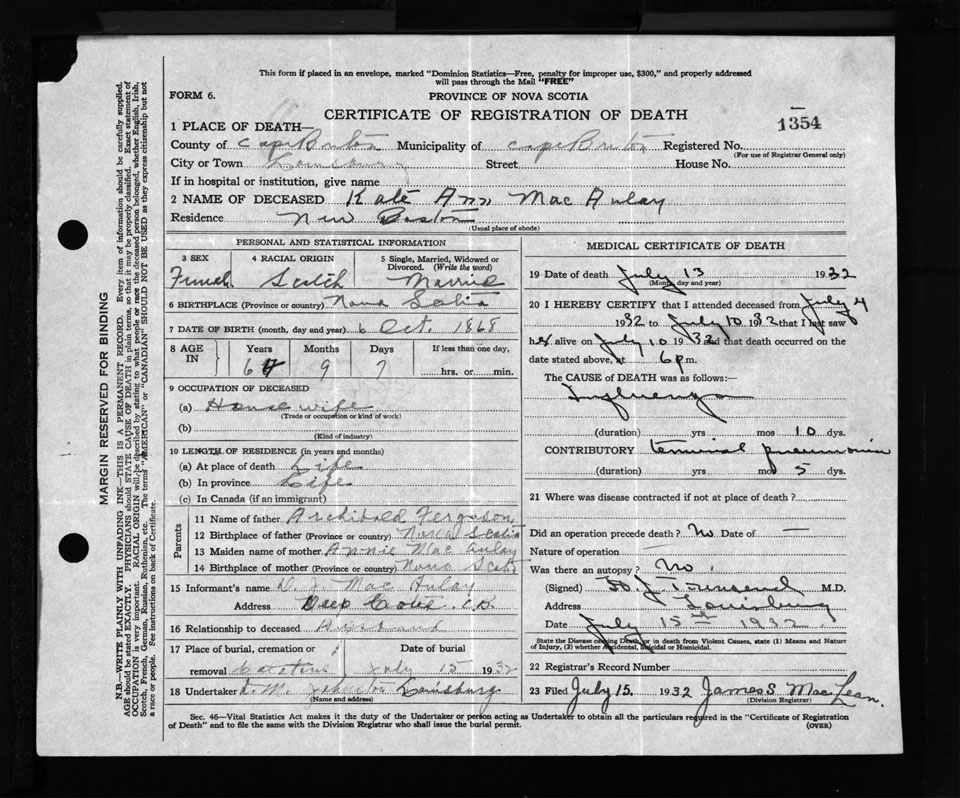 This form if placed in an envelope, marked "Dominion Statistics—Free, penalty for improper use, $300," and properly addressed
will pass through the Mail "FREE"
FORM 6.
PROVINCE OF NOVA SCOTIA
CERTIFICATE OF REGISTRATION OF DEATH
1354
1 PLACE OF DEATH—
County of Cape Breton Municipality of Cape Breton Registered No.
(For use of Registrar General only)
City or Town Louisburg Street House No.
If in hospital or institution, give name
2 NAME OF DECEASED Kate Ann Mac Aulay
Residence New Boston
(Usual place of abode)
PERSONAL AND STATISTICAL INFORMATION
3 SEX 4 RACIAL ORIGIN 5 Single, Married, Widowed or
Divorced. (Write the word)
Scotch Married
6 BIRTHPLACE (Province or country) Nova Scotia
7 DATE OF BIRTH (month, day and year) 6 Oct. 1868
8 AGE IN Years Months Days If less than one day,
9 7 hrs. or min.
9 OCCUPATION OF DECEASED
(a) House wife
(Trade or occupation or kind of work)
(b)
(Kind of industry)
10 LENGTH OF RESIDENCE (in years and months)
(a) At place of death Life
(b) In province Life
(c) In Canada (if an immigrant)
Parents
11 Name of father Archibald Ferguson
12 Birthplace of father (Province or country) Nova Scotia
13 Maiden name of mother Annie Mac Aulay
14 Birthplace of mother (Province or country) Nova Scotia
15 Informant's name D. J. Mac Aulay
Address Deep Cove C.B.
16 Relationship to deceased Husband
17 Place of burial, cremation or Date of burial
removal July 15 1932
18 Undertaker Louisburg
(Name and address)
MEDICAL CERTIFICATE OF DEATH
19 Date of death July 13 1932
(Month, day and year)
20 I HEREBY CERTIFY that I attended deceased from July 4
1932 to July 10 1932 that I last saw
her alive on July 10 1932 and that death occurred on the
date stated above, at 6 p.m.
The CAUSE of DEATH was as follows:
Influenza
(duration) yrs mos 10 dys.
CONTRIBUTORY terminal pneumonia
(duration) yrs mos 5 dys.
21 Where was disease contracted if not at place of death?
Did an operation precede death? No Date of —
Nature of operation —
Was there an autopsy? No
(Signed) M.D.
Address Louisburg
Date July 15th 1932
State the Disease causing Death, or in death from Violent Causes, state (1) Means and Nature
of Injury, (2) whether Accidental, Suicidal or Homicidal.
22 Registrar's Record Number
23 Filed July 15. 1932 James S. MacLean.
(Division Registrar)
Sec. 46—Vital Statistics Act makes it the duty of the Undertaker or person acting as Undertaker to obtain all the particulars required in the "Certificate of Registration
of Death" and to file the same with the Division Registrar who shall issue the burial permit.
(OVER)
MARGIN RESERVED FOR BINDING
N.B.—WRITE PLAINLY WITH UNFADING INK—THIS IS A PERMANENT RECORD. Every item of information should be carefully supplied.
AGE should be stated EXACTLY. PHYSICIANS should STATE CAUSE OF DEATH in plain terms, so that it may be properly classified. Exact statement of
OCCUPATION is very important. RACIAL ORIGIN will be described by stating to what people or race the deceased person belonged, whether English, Irish,
Scotch, French, German, Russian, Ruthenian, etc. The terms "AMERICAN" or "CANADIAN" SHOULD NOT BE USED as they express citizenship but not
a race or people. See instructions on back of Certificate.